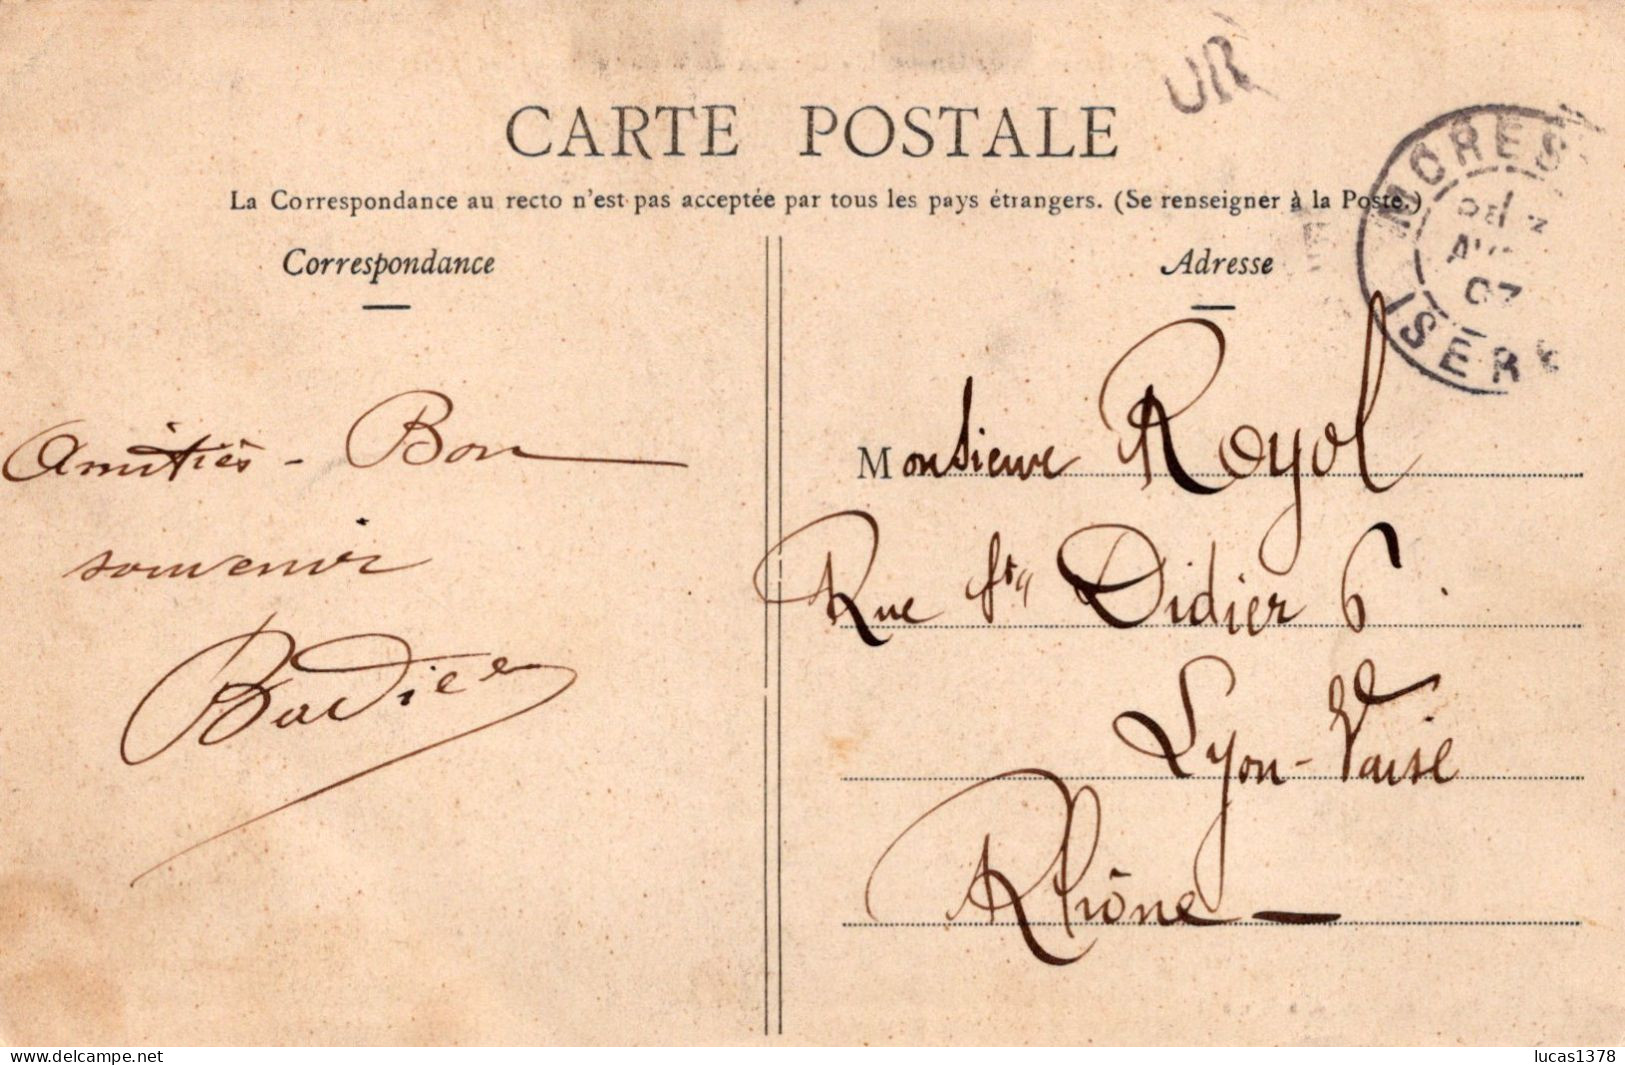 UR
CARTE POSTALE
La Correspondance au recto n'est pas acceptée par tous les pays étrangers. (Se renseigner à la Poste.)
MORES
07
ISERE
Correspondance
Amitiés - Bon
souvenir
Badier
Adresse
Monsieur Royol
Rue St Didier 6.
Lyon-Vaise
Rhône -
www.delcampe.net
lucas1378